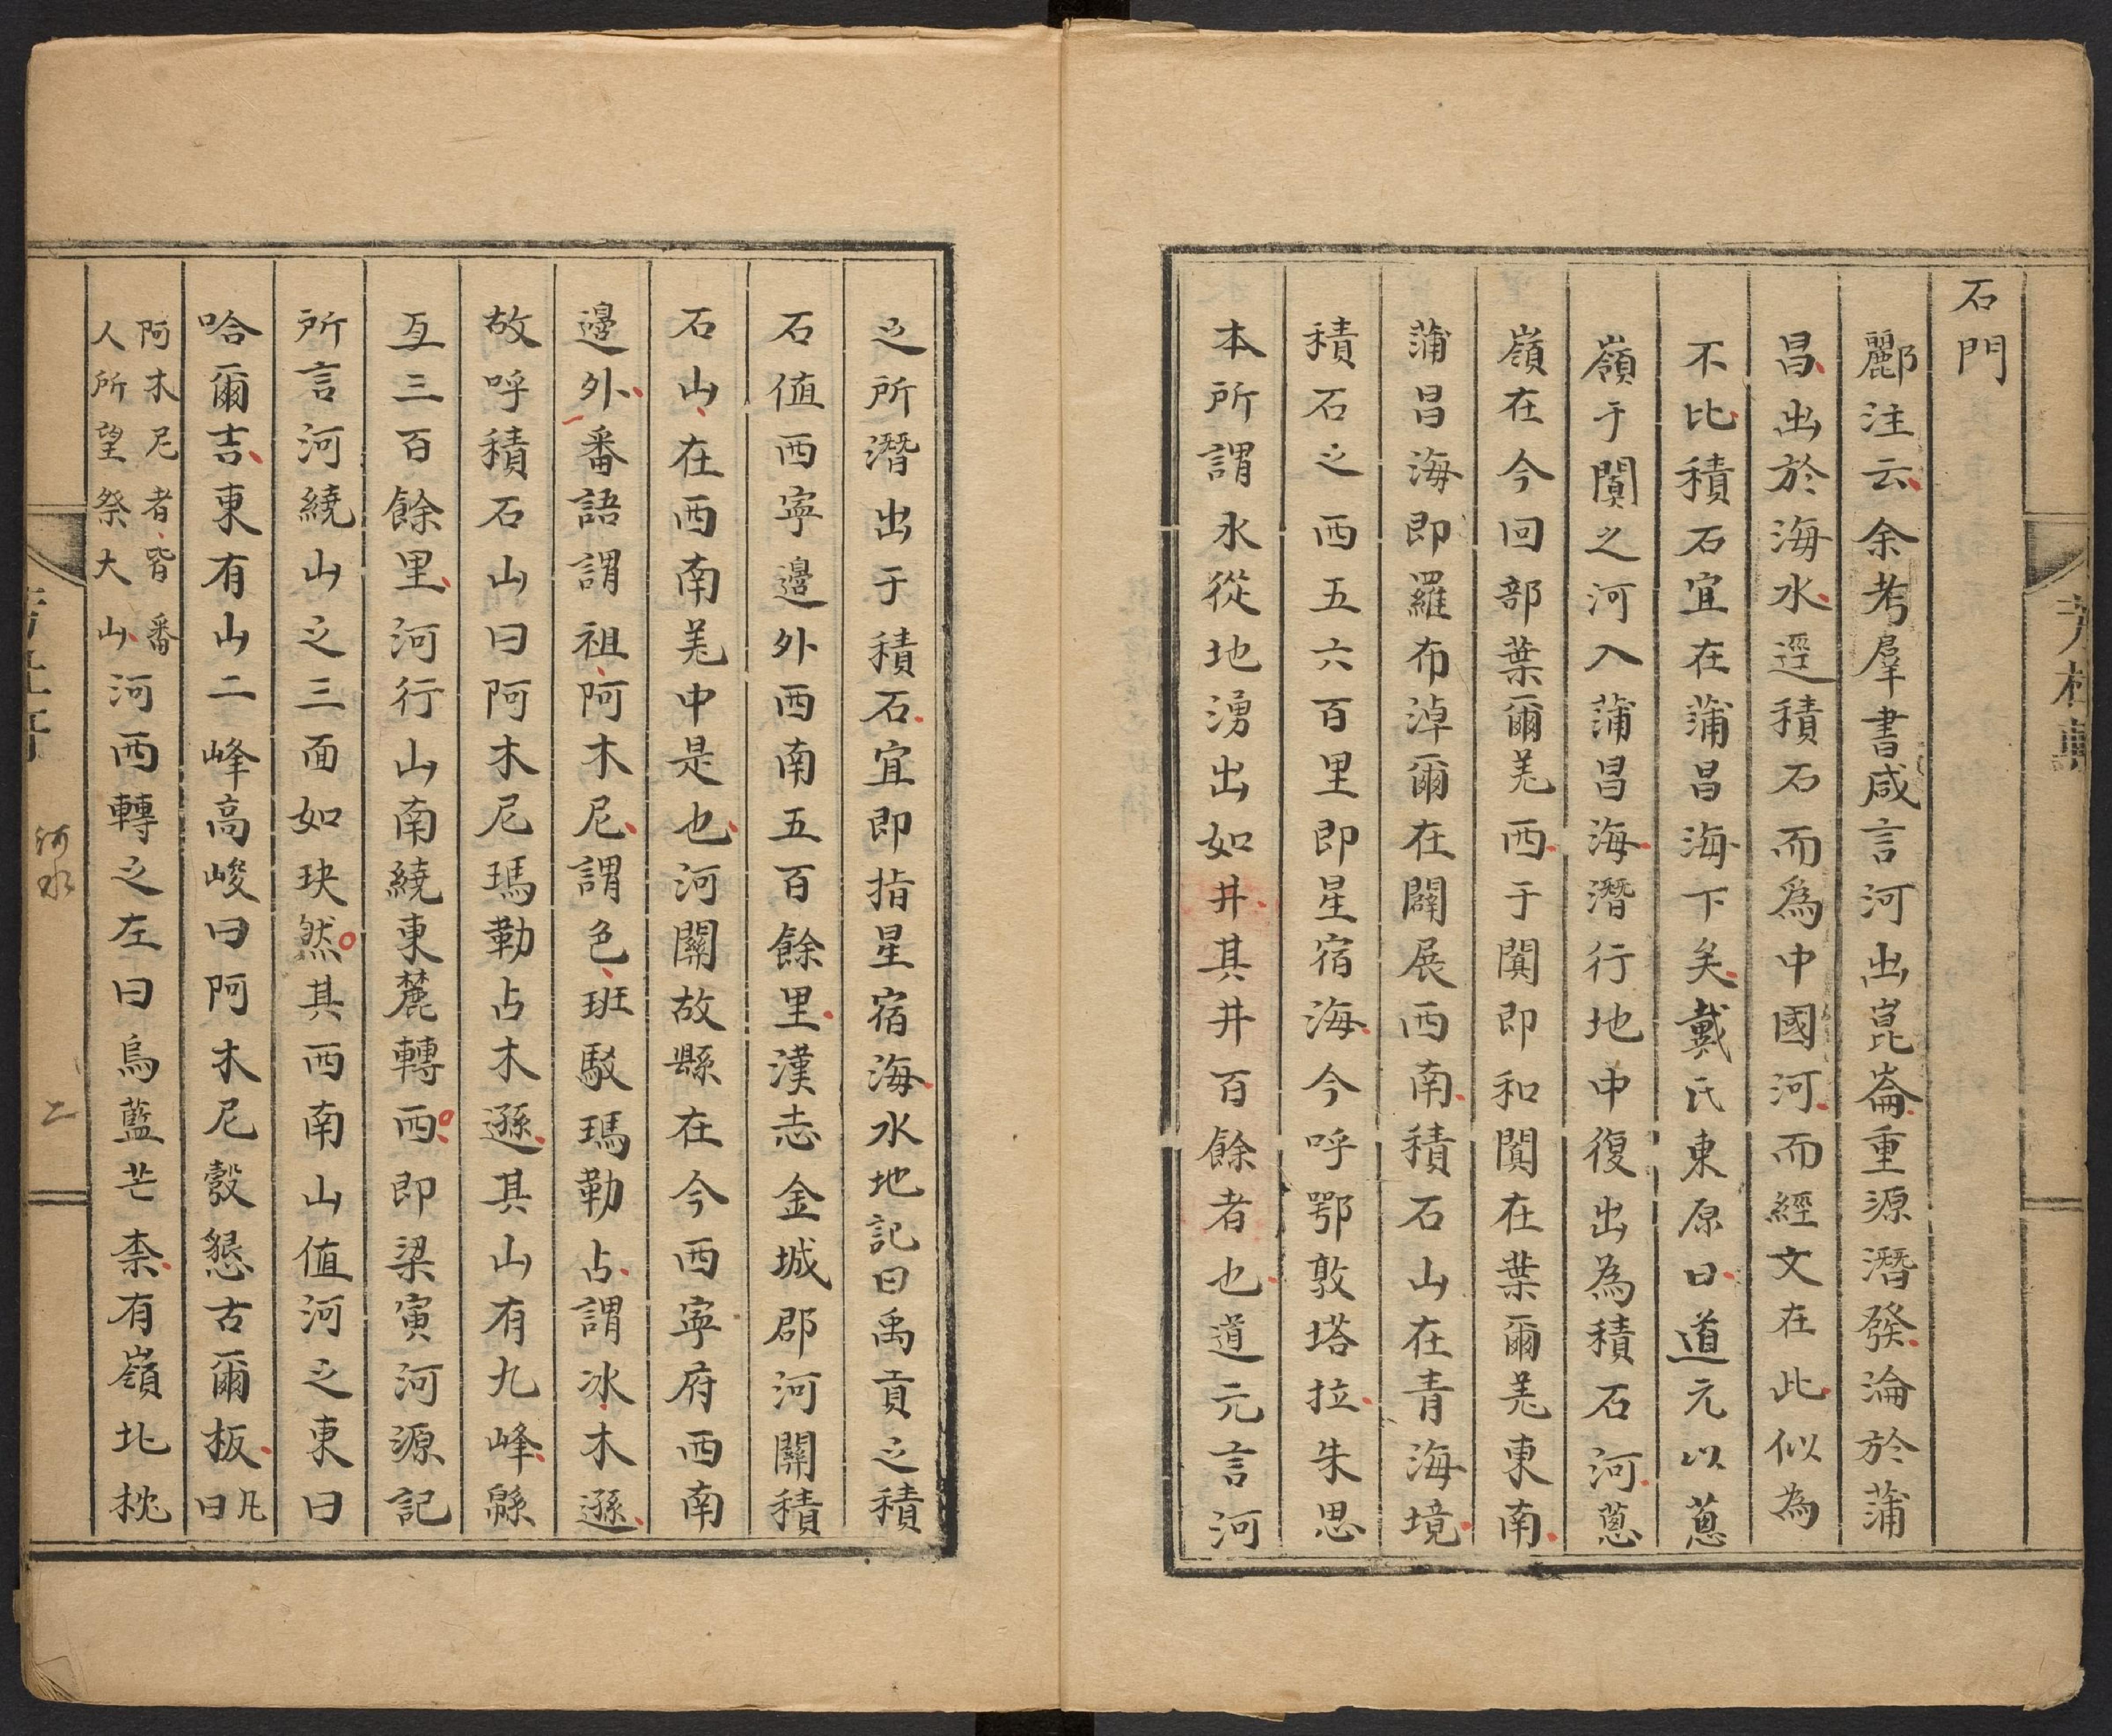 石門
酈注云余考羣書咸言河出崑崙重源潛發淪於蒲
昌出於海水逕積石而爲中國河而經文在此似為
不比積石宜在蒲昌海下矣戴氏東原曰道元以蔥
嶺于闐之河入蒲昌海潛行地中復出為積石河蔥
嶺在今回部葉爾羌西于闐即和闐在葉爾羌東南
蒲昌海即羅布淖爾在闢展西南積石山在青海境
積石之西五六百里即星宿海今呼鄂敦塔拉朱思
本所謂水從地湧出如井其井百餘者也道元言河
之所潛出于積石宜即指星宿海水地記曰禹貢之積
石值西寧邊外西南五百餘里漢志金城郡河關積
石山在西南羌中是也河關故縣在今西寧府西南
邊外番語謂祖阿木尼謂色班駁瑪勒占謂冰木遜
故呼積石山曰阿木尼瑪勒占木遜其山有九峰緜
亙三百餘里河行山南繞東麓轉西即梁寅河源記
所言河繞山之三面如玦然其西南山值河之東曰
哈爾吉東有山二峰高峻曰阿木尼嗀懇古爾板凡曰
阿木尼者皆番人所望祭大山河西轉之左曰烏藍芒柰有嶺北枕
河水
二